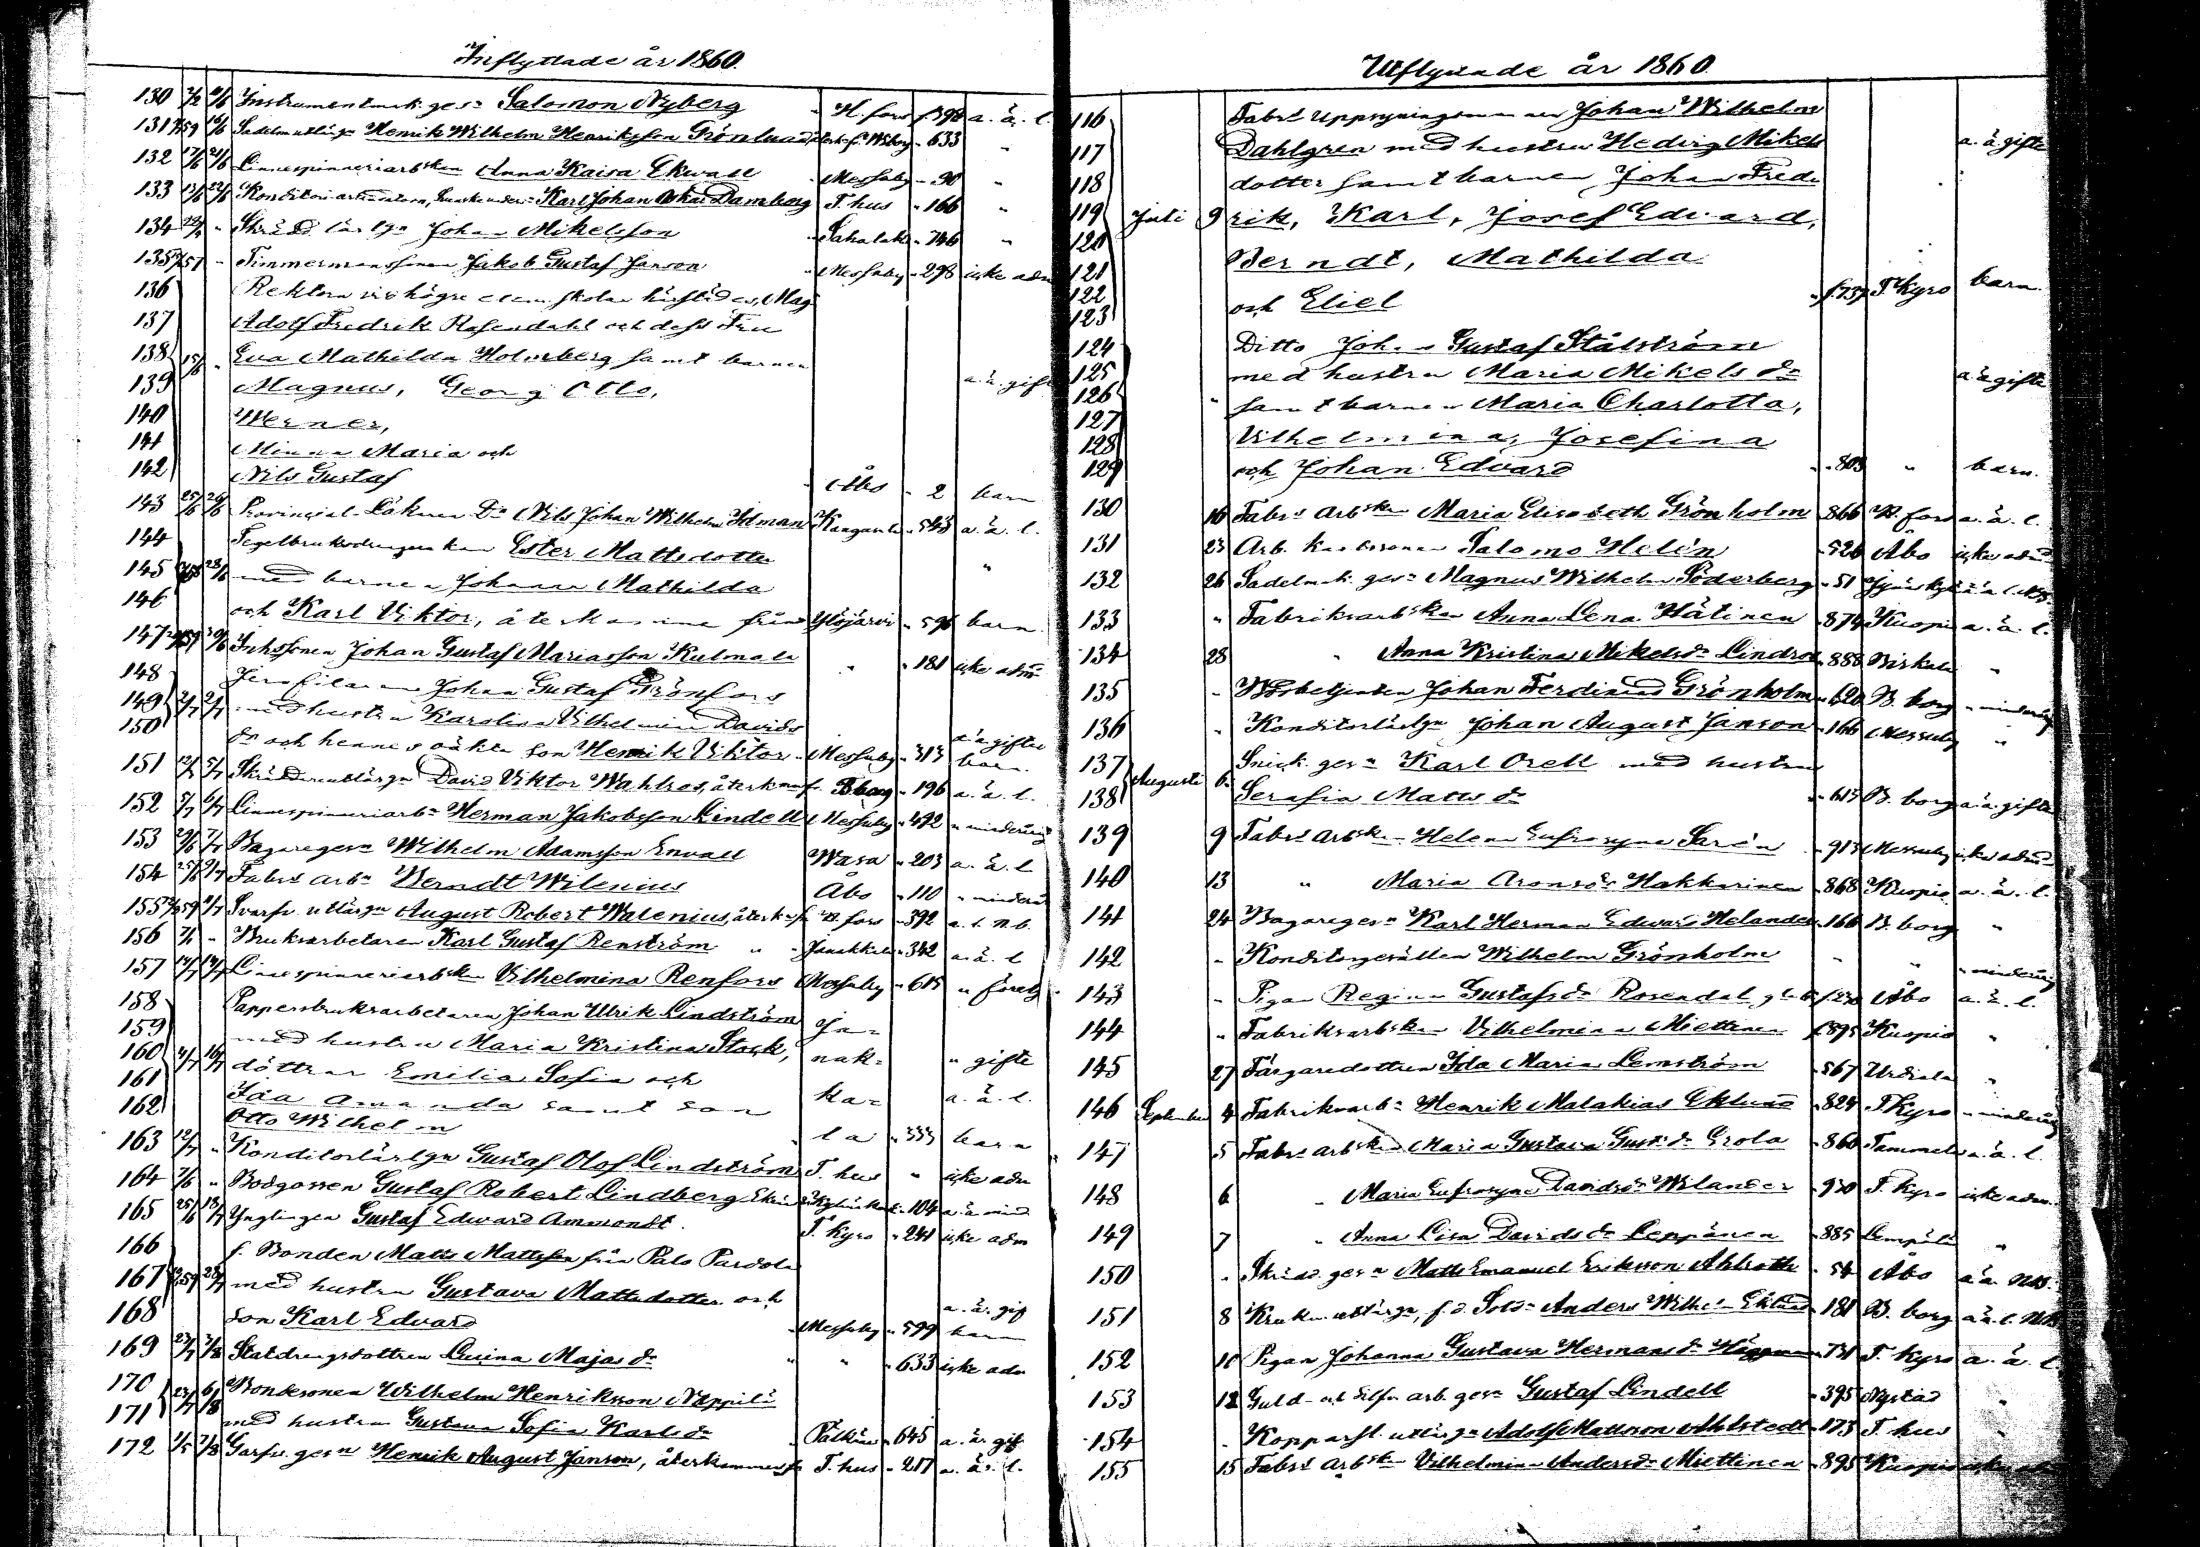 Inflyttade år 1860.
130 Instrumentmak. ges. Salomon Nyberg H.fors f. 398 a. ä. l.
131 Henrik Wilhelm Henriksson Grönlund 633
132 Linnespinneriarbskan Anna Kaisa Ekwall Messuby 90
133 Karl Johan Oskar Damberg T.hus 166
134 Skrädd. lärlgn Johan Mikelsson Sahalaks 746
135 Timmermanssonen Jakob Gustaf Janson Messuby 298 icke adm
136 Rektorn vid högre elem. skolan härstädes, Mag
137 Adolf Fredrik Rosendahl och dess Fru
138 Eva Mathilda Holmberg samt barnen
139 Magnus, Georg Otto, a. ä. gifte
140 Werner,
141 Minna Maria och
142 Nils Gustaf Åbo 2 barn
143 25/6 26/6 Provincial-Läkaren Dr Nils Johan Wilhelm Idman Kangasala 543 a. ä. l.
144 Ester Mattsdotter
145 med barnen Johanna Mathilda
146 och Karl Viktor, återkomne från Ylöjärvi 596 barn
147 Inhssonen Johan Gustaf Mariasson Kulmala 181 icke adm
148 Johan Gustaf Grönfors
149 med hustru Karolina Vilhelmina Davids
150 dr och hennes oäkta son Henrik Viktor Messuby 313 a ä gifte barn
151 David Viktor Wahlros, återkom fr. B.borg 196 a. ä. l.
152 Linnespinneriarbn Herman Jakobsson Lindell Messuby 492 minderårig
153 Bagareges. Wilhelm Adamsson Envall Wasa 203 a. ä. l
154 Fabrs arbn Werndt Wilenius Åbo 110 minderå
155 Svarfv. utlärgn August Robert Walenius, återk. fr. H.fors 392 a. l. N.b.
156 Bruksarbetaren Karl Gustaf Renström Janakkala 342 a. ä. l
157 Linnespinneriarbskan Vilhelmina Renfors Messuby 615
158 Pappersbruksarbetaren Johan Ulrik Lindström Ja=
159 med hustru Maria Kristina Stock, nak=
160 döttrar Emilia Sofia och gifte
161 Ida Amanda samt son ka= a. ä. l.
162 Otto Wilhelm la 333 barn
163 Konditorlärlgn Gustaf Olof Lindström T.hus icke adm
164 Bodgossen Gustaf Robert Lindberg 104
165 Ynglingen Gustaf Edward Ammondt. T.kyro 241 icke adm
166 f. Bonden Matts Mattsson från Palo Pardola
167 med hustru Gustava Mattsdotter och
168 son Karl Edvard Messuby 599 a. ä. gif barn
169 Statdrängsdottren Lovina Majasdr 633 icke adm
170 Bondesonen Wilhelm Henriksson Näppilä
171 med hustru Gustava Sofia Karlsdr Pälkäne 645 a. ä. gif
172 Garfv. gesn Henrik August Janson, återkommen fr T.hus 217 a. ä. l.
Utflyttade år 1860.
116 Johan Wilhelm
117 Dahlgren med hustru Hedvig Mikels a. ä gifte
118 dotter samt barnen Johan Fred
119 Juli 9 rik, Karl, Josef Edvard,
120
121 Berndt, Mathilda
122
123 och Eliel f. 737 T.kyro barn.
124 Ditto Johan Gustaf Stålström
125 med hustru Maria Mikelsdr a ä gifte
126 samt barnen Maria Charlotta,
127
128 Vilhelmina, Josefina
129 och Johan Edvard 803 barn.
130 16 Fabrs arbskan Maria Elisabeth Grönholm 866 H.fors a. ä. l.
131 23 Arb. karlssonen Salomo Helén 526 Åbo icke adm
132 26 Sadelmak. gesn Magnus Wilhelm Söderberg 51
133 Fabriksarbskan Anna Lena Hätinen 874 Kuopio a. ä. l.
134 28 Anna Kristina Mikelsdr Lindroos 888 Birkala
135 Johan Ferdinand Grönholm 620 B.borg minderårig
136 Konditorlärlgn Johan August Janson 166 Messuby
137 Snick. gesn Karl Orell med hustru
138 Augusti 6 Serafia Mattsdr 613 B.borg a. ä. gifte
139 9 Fabrs arbskan Helena Eufrosyne Sarén 913 Messuby icke adm
140 13 Maria Aronsdr Hakkarinen 868 Kuopio a. ä. l.
141 24 Bagaregesn Karl Herman Edward Helander 166 B.borg
142 Konditorgesällen Wilhelm Grönholm minderårig
143 Pigan Regina Gustafsdr Rosendal Åbo a. ä. l.
144 Fabriksarbskan Vilhelmina Miettinen f. 895 Kuopio
145 27 Färgaredottren Ida Maria Lemström 567 Urdiala
146 September 4 Fabriksarbn Henrik Malakias Eklund 824 T.kyro minderårig
147 5 Fabrs arbskan Maria Gustava Gustdr Grola 860 Tammela a. ä. l.
148 6 Maria Eufrosyne Davidsdr Wilander 930 T.kyro icke adm.
149 7 Anna Lisa Davidsdr Leppänen 885 Lempälä
150 Skrädd. gesn Matts Emanuel Eriksson Ahlroth 54 Åbo
151 8 f. d. Sold. Anders Wilhelm Eklund 181 B.borg
152 10 Pigan Johanna Gustava Hermansdr Häggman 731 T.kyro a. ä. l.
153 12 Guld- och Silfv. arb. gesn Gustaf Lindell 395 Nystad
154 Kopparsl. utlärgn Adolf Mattsson Ahlstedt 173 T.hus
155 15 Fabrs arbskan Vilhelmina Andersdr Miettinen 895 Kuopio